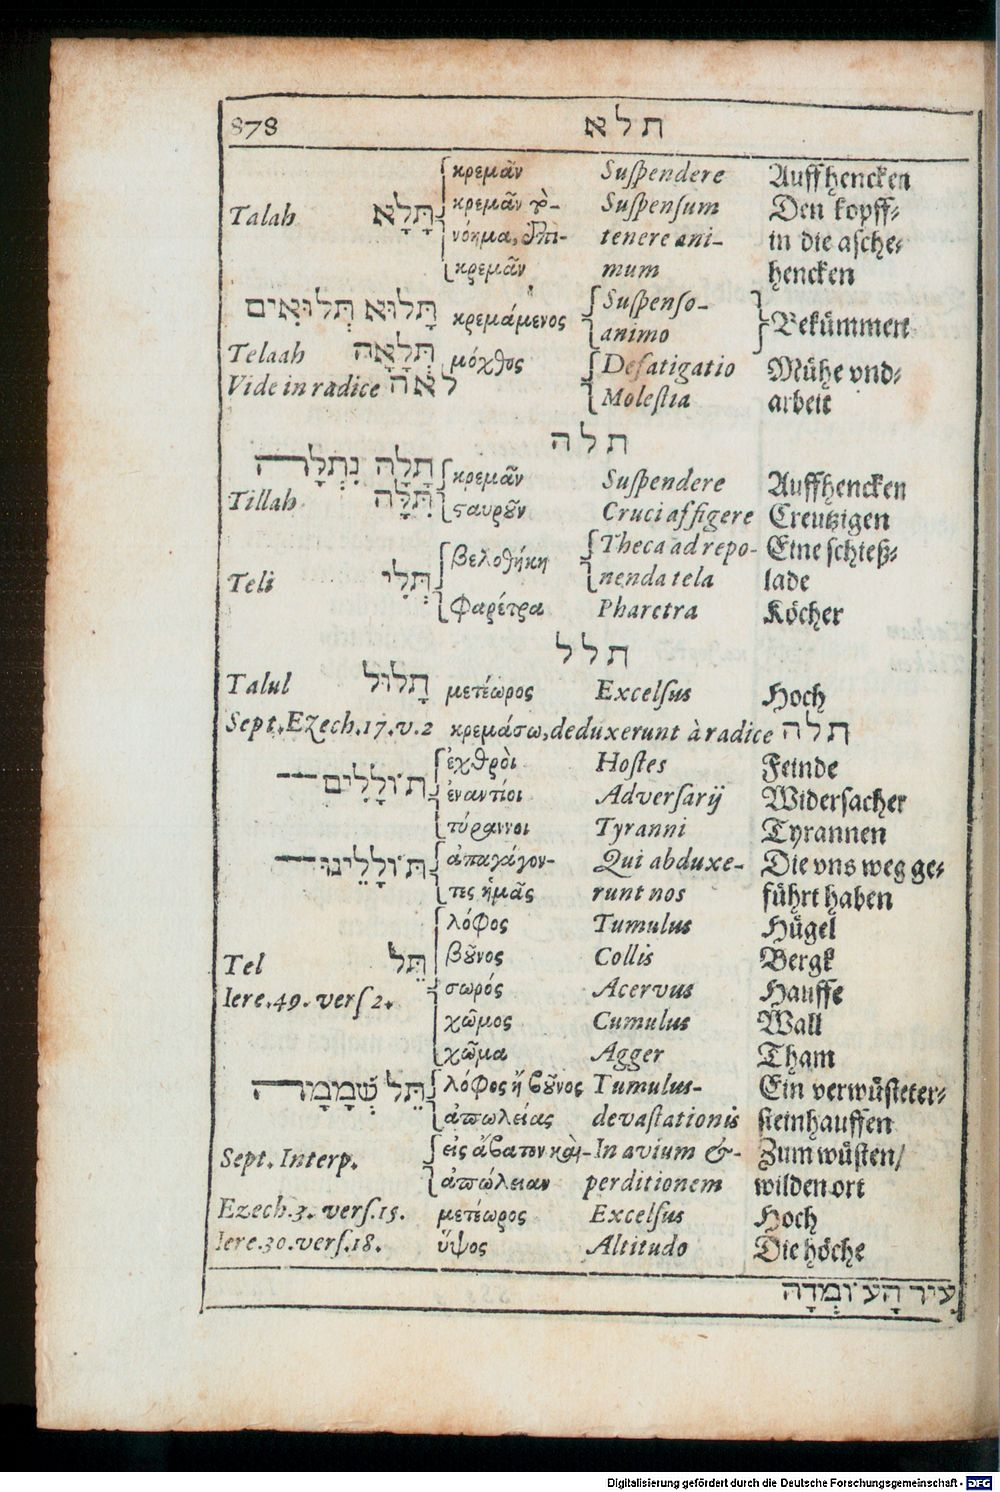 878 תלא
κρεμᾶν Suſpendere Auffhencken
Talah תָּלָא κρεμᾶν τὸ- Suſpenſum Den kopff-
νόημα, ἐπι- tenere ani- in die aſche-
κρεμᾶν mum hencken
תָּלוּא תְּלוּאִים κρεμάμενος Suſpenſo- animo Bekümmert
Telaah תְּלָאָה μόχθος Defatigatio Mühe vnd-
Vide in radice לאה Moleſtia arbeit
תלה
תָּלָה נִתְלָה κρεμᾶν Suſpendere Auffhencken
Tillah תִּלָּה ςαυροῦν Cruci affigere Creutzigen
βελοθήκη Theca ad repo- Eine ſchieß-
Teli תְּלִי nenda tela lade
φαρέτρα Pharetra Köcher
תלל
Talul תָלוּל μετέωρος Excelſus Hoch
Sept. Ezech. 17. v. 2 κρεμάσω, deduxerunt à radice תלה
ἐχθροὶ Hoſtes Feinde
תּוֹלָלִים— ἐναντίοι Adverſarij Widerſacher
τύραννοι Tyranni Tyrannen
תּוֹלָלֵינוּ— ἀπαγάγον- Qui abduxe- Die vns weg ge-
τες ἡμᾶς runt nos führt haben
λόφος Tumulus Hügel
Tel תֵּל βοῦνος Collis Bergk
Iere. 49. verſ 2. σωρός Acervus Hauffe
χῶμος Cumulus Wall
χῶμα Agger Tham
תֵּל שְׁמָמָה λόφος ἢ βοῦνος Tumulus- Ein verwüſteter-
ἀπωλείας devaſtationis ſteinhauffen
Sept. Interp. εἰς ἄβατον καὶ- In avium &- Zum wüſten/
ἀπώλειαν perditionem wilden ort
Ezech. 3. verſ. 15. μετέωρος Excelſus Hoch
Iere. 30. verſ. 18. ὕψος Altitudo Die höche
עִיר הָעוֹמְדָה
Digitalisierung gefördert durch die Deutsche Forschungsgemeinschaft - DFG